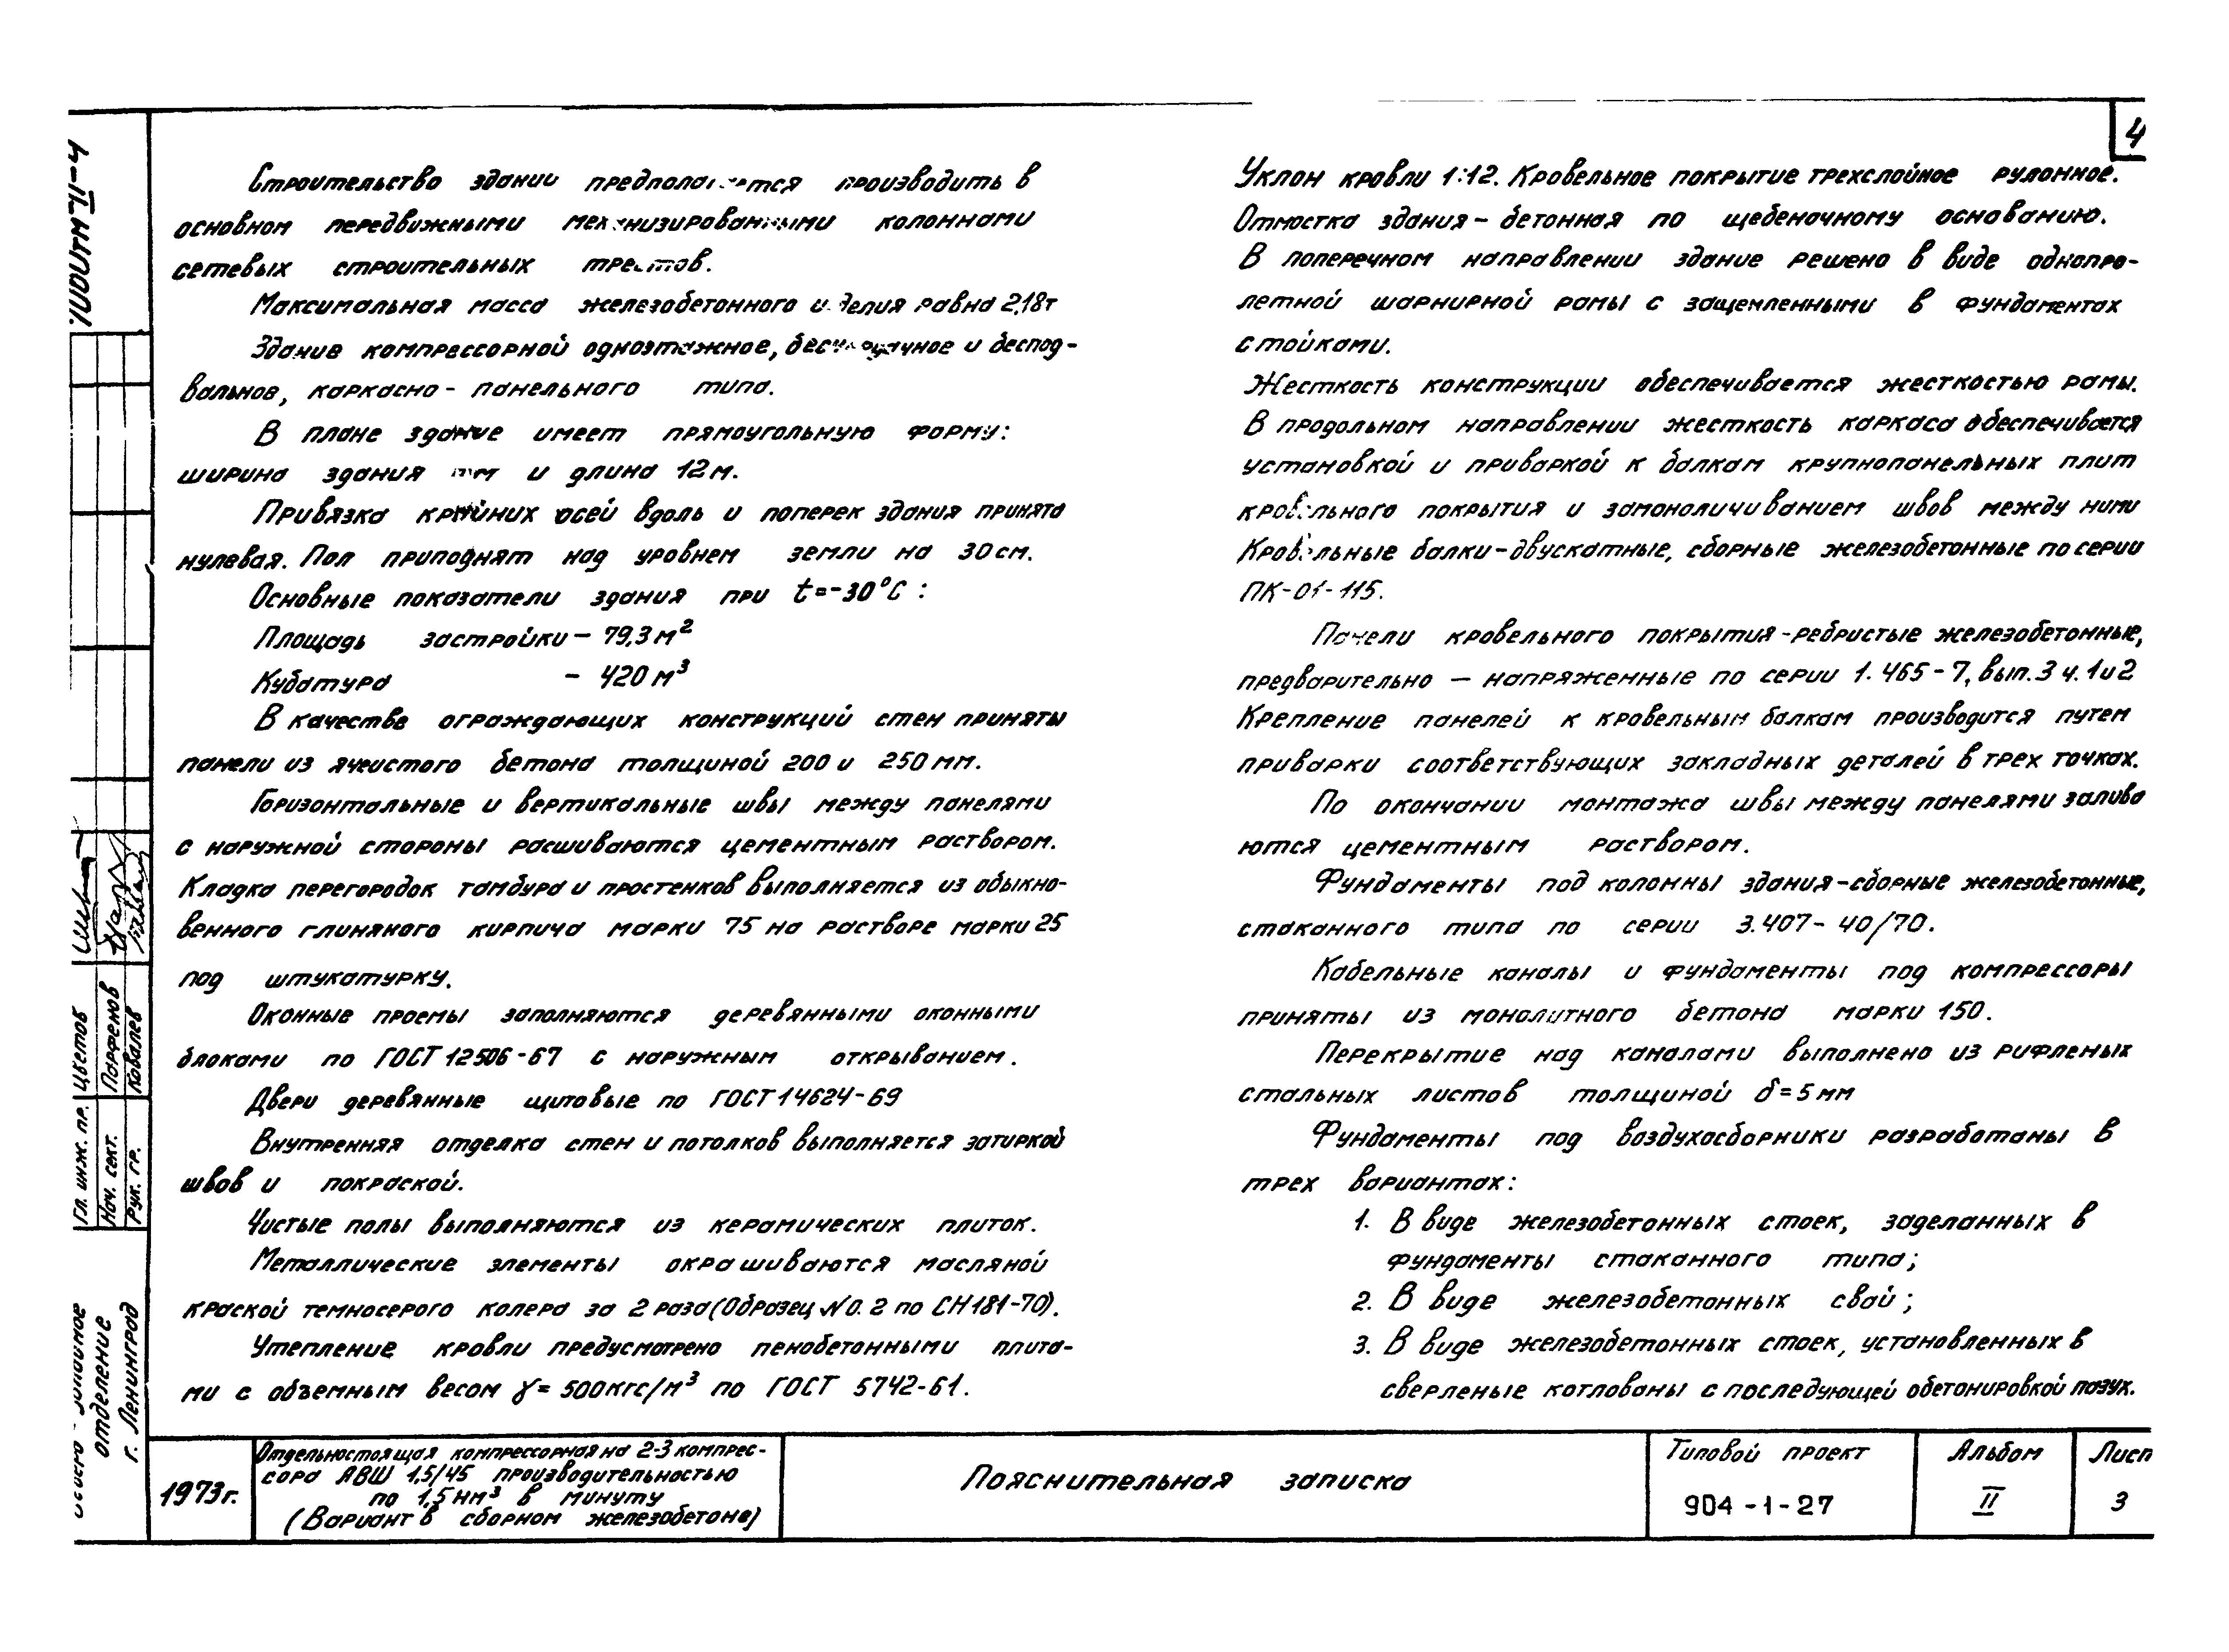 4
Строительство зданий предполагается производить в
основном передвижными механизированными колоннами
сетевых строительных трестов.
Максимальная масса железобетонного изделия равна 2,18т
Здание компрессорной одноэтажное, бесчердачное и беспод-
вальное, каркасно - панельного типа.
В плане здание имеет прямоугольную форму:
ширина здания и длина 12м.
Привязка крайних осей вдоль и поперек здания принята
нулевая. Пол приподнят над уровнем земли на 30см.
Основные показатели здания при t=-30°С :
Площадь застройки - 79,3 м²
Кубатура - 420 м³
В качестве ограждающих конструкций стен приняты
панели из ячеистого бетона толщиной 200 и 250мм.
Горизонтальные и вертикальные швы между панелями
с наружной стороны расшиваются цементным раствором.
Кладка перегородок тамбура и простенков выполняется из обыкно-
венного глиняного кирпича марки 75 на растворе марки 25
под штукатурку.
Оконные проемы заполняются деревянными оконными
блоками по ГОСТ 12506-67 с наружным открыванием.
Двери деревянные щитовые по ГОСТ 14624-69
Внутренняя отделка стен и потолков выполняется затиркой
швов и покраской.
Чистые полы выполняются из керамических плиток.
Металлические элементы окрашиваются масляной
краской темносерого колера за 2 раза (Образец No. 2 по СН181-70).
Утепление кровли предусмотрено пенобетонными плита-
ми с объемным весом γ= 500кгс/м³ по ГОСТ 5742-61.
Уклон кровли 1:12. Кровельное покрытие трехслойное рулонное.
Отмостка здания - бетонная по щебеночному основанию.
В поперечном направлении здание решено в виде однопро-
летной шарнирной рамы с защемленными в фундаментах
стойками.
Жесткость конструкции обеспечивается жесткостью рамы.
В продольном направлении жесткость каркаса обеспечивается
установкой и приваркой к балкам крупнопанельных плит
кровельного покрытия и замоноличиванием швов между ними
Кровельные балки-двускатные, сборные железобетонные по серии
ПК-01-115.
Панели кровельного покрытия-ребристые железобетонные,
предварительно — напряженные по серии 1.465-7, вып. 3 ч. 1 и 2
Крепление панелей к кровельным балкам производится путем
приварки соответствующих закладных деталей в трех точках.
По окончании монтажа швы между панелями залива
ются цементным раствором.
Фундаменты под колонны здания-сборные железобетонные,
стаканного типа по серии 3.407- 40/70.
Кабельные каналы и фундаменты под компрессоры
приняты из монолитного бетона марки 150.
Перекрытие над каналами выполнено из рифленых
стальных листов толщиной δ=5мм
Фундаменты под воздухосборники разработаны в
трех вариантах:
1. В виде железобетонных стоек, заделанных в
фундаменты стаканного типа;
2. В виде железобетонных свай;
3. В виде железобетонных стоек, установленных в
сверленые котлованы с последующей обетонировкой пазух.
Гл. инж. пр. Цветов
Нач. сект. Парфенов
Рук. гр. Ковалев
отделение
г. Ленинград
1973г.
Отдельностоящая компрессорная на 2-3 компрес-
сора АВШ 1,5/45 производительностью
по 1,5 нм³ в минуту
(Вариант в сборном железобетоне)
Пояснительная записка
Типовой проект
904-1-27
Альбом
II
Лист
3